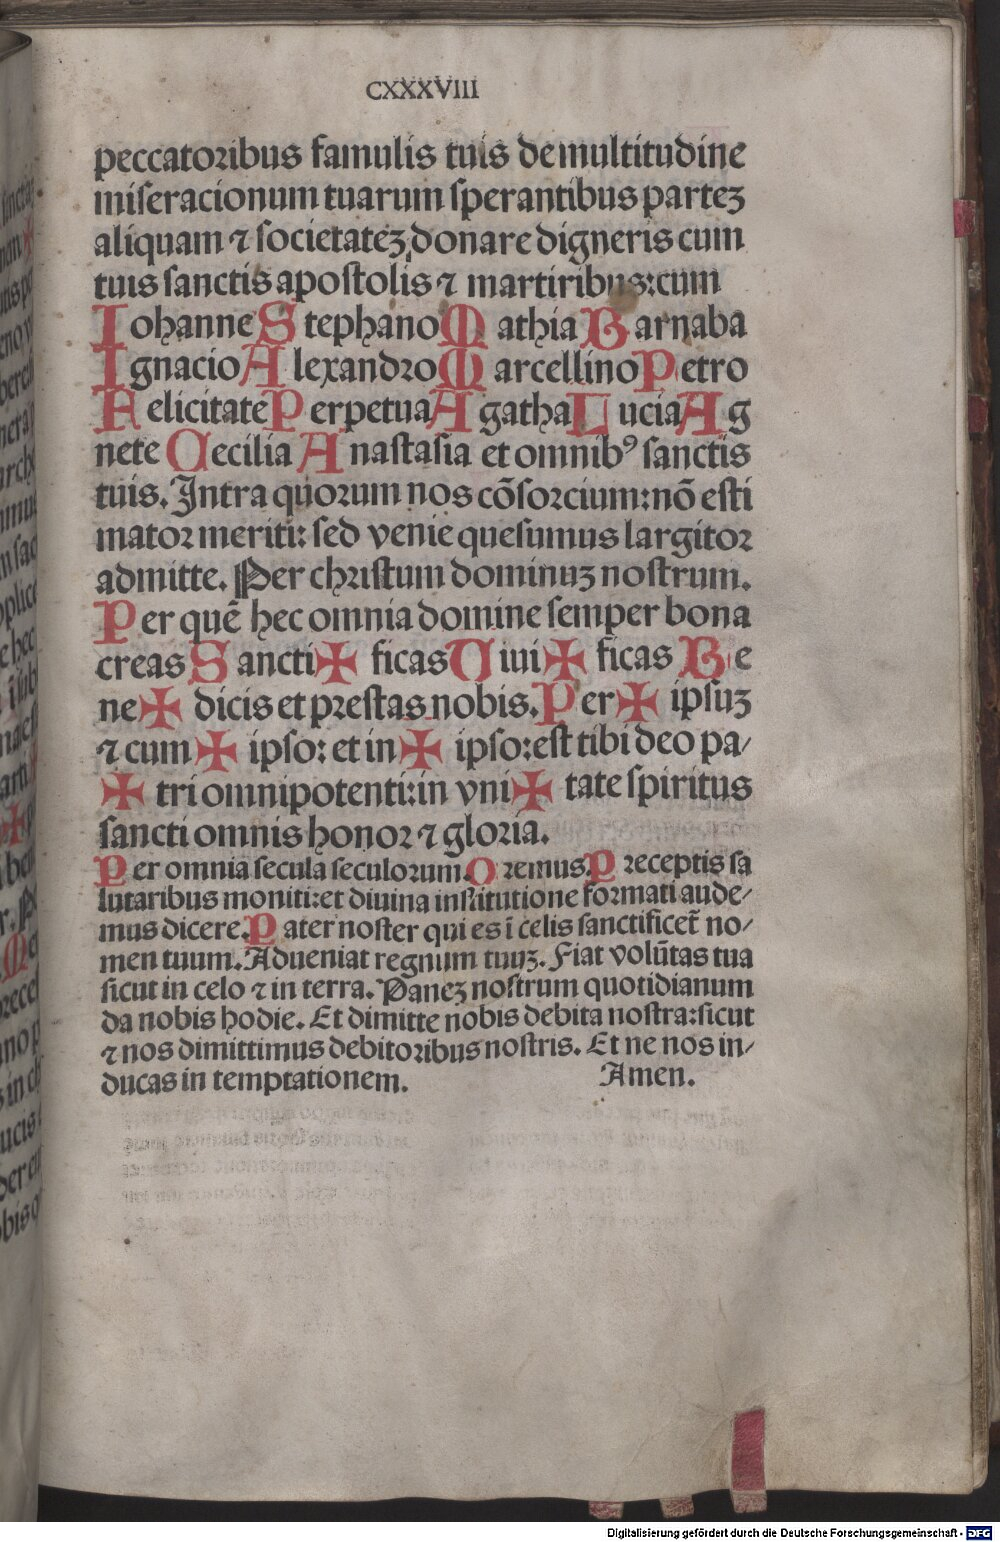 CXXXVIII
peccatoribus famulis tuis de multitudine
miseracionum tuarum sperantibus partez
aliquam ⁊ societatez donare digneris cum
tuis sanctis apostolis ⁊ martiribus: cum
Iohanne Stephano Mathia Barnaba
Ignacio Alexandro Marcellino Petro
Felicitate Perpetua Agatha Lucia Ag
nete Cecilia Anastasia et omnibꝰ sanctis
tuis. Intra quorum nos cōsorcium: nō esti
mator meriti: sed venie quesumus largitor
admitte. Per christum dominuz nostrum.
Per quē hec omnia domine semper bona
creas Sancti ✠ ficas Uiui ✠ ficas Be
ne ✠ dicis et prestas nobis. Per ✠ ipsuz
⁊ cum ✠ ipso: et in ✠ ipso: est tibi deo pa/
✠ tri omnipotenti: in vni ✠ tate spiritus
sancti omnis honor ⁊ gloria.
Per omnia secula seculorum. Oremus. Preceptis sa
lutaribus moniti: et diuina institutione formati aude/
mus dicere. Pater noster qui es ī celis sanctificet̄ no/
men tuum. Adueniat regnum tuuz. Fiat volūtas tua
sicut in celo ⁊ in terra. Panez nostrum quotidianum
da nobis hodie. Et dimitte nobis debita nostra: sicut
⁊ nos dimittimus debitoribus nostris. Et ne nos in/
ducas in temptationem. Amen.
Digitalisierung gefördert durch die Deutsche Forschungsgemeinschaft - DFG